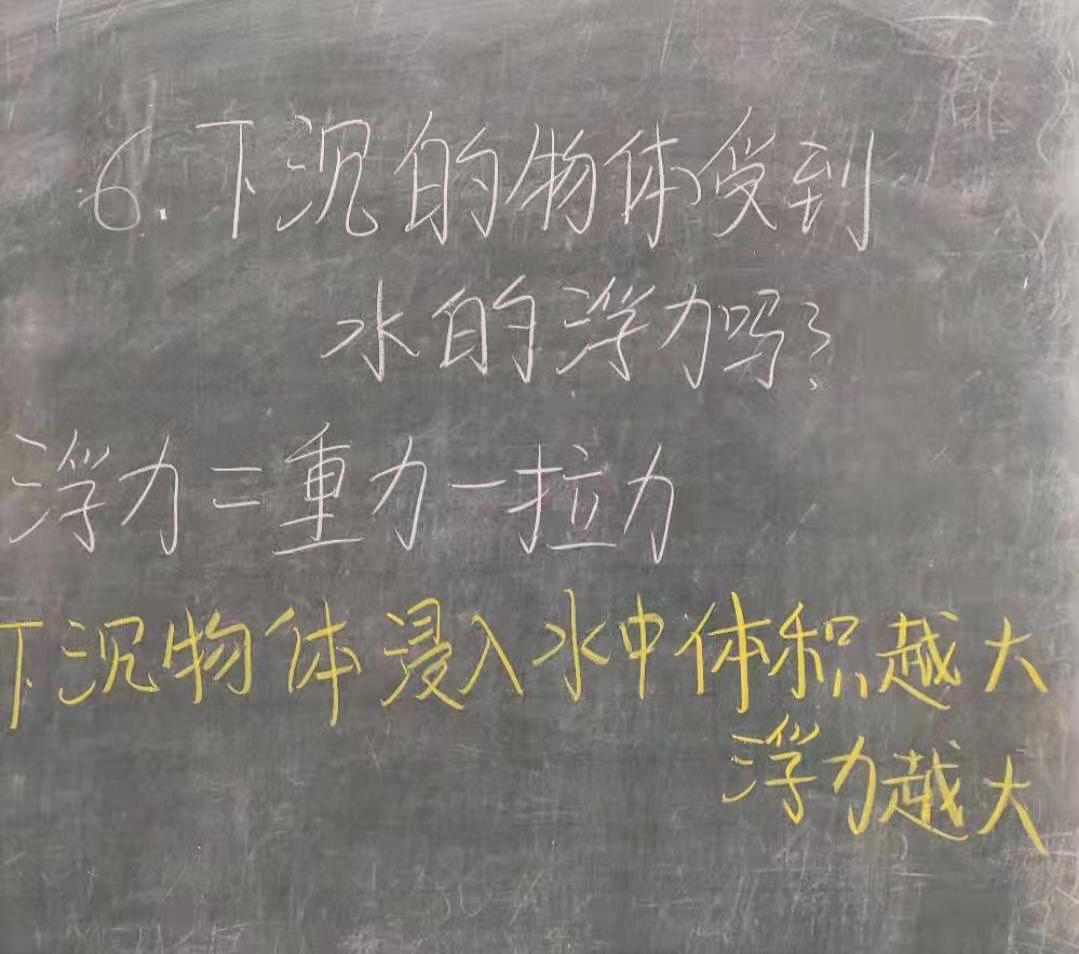 6.下沉的物体受到
水的浮力吗?
浮力=重力-拉力
下沉物体浸入水中体积越大
浮力越大